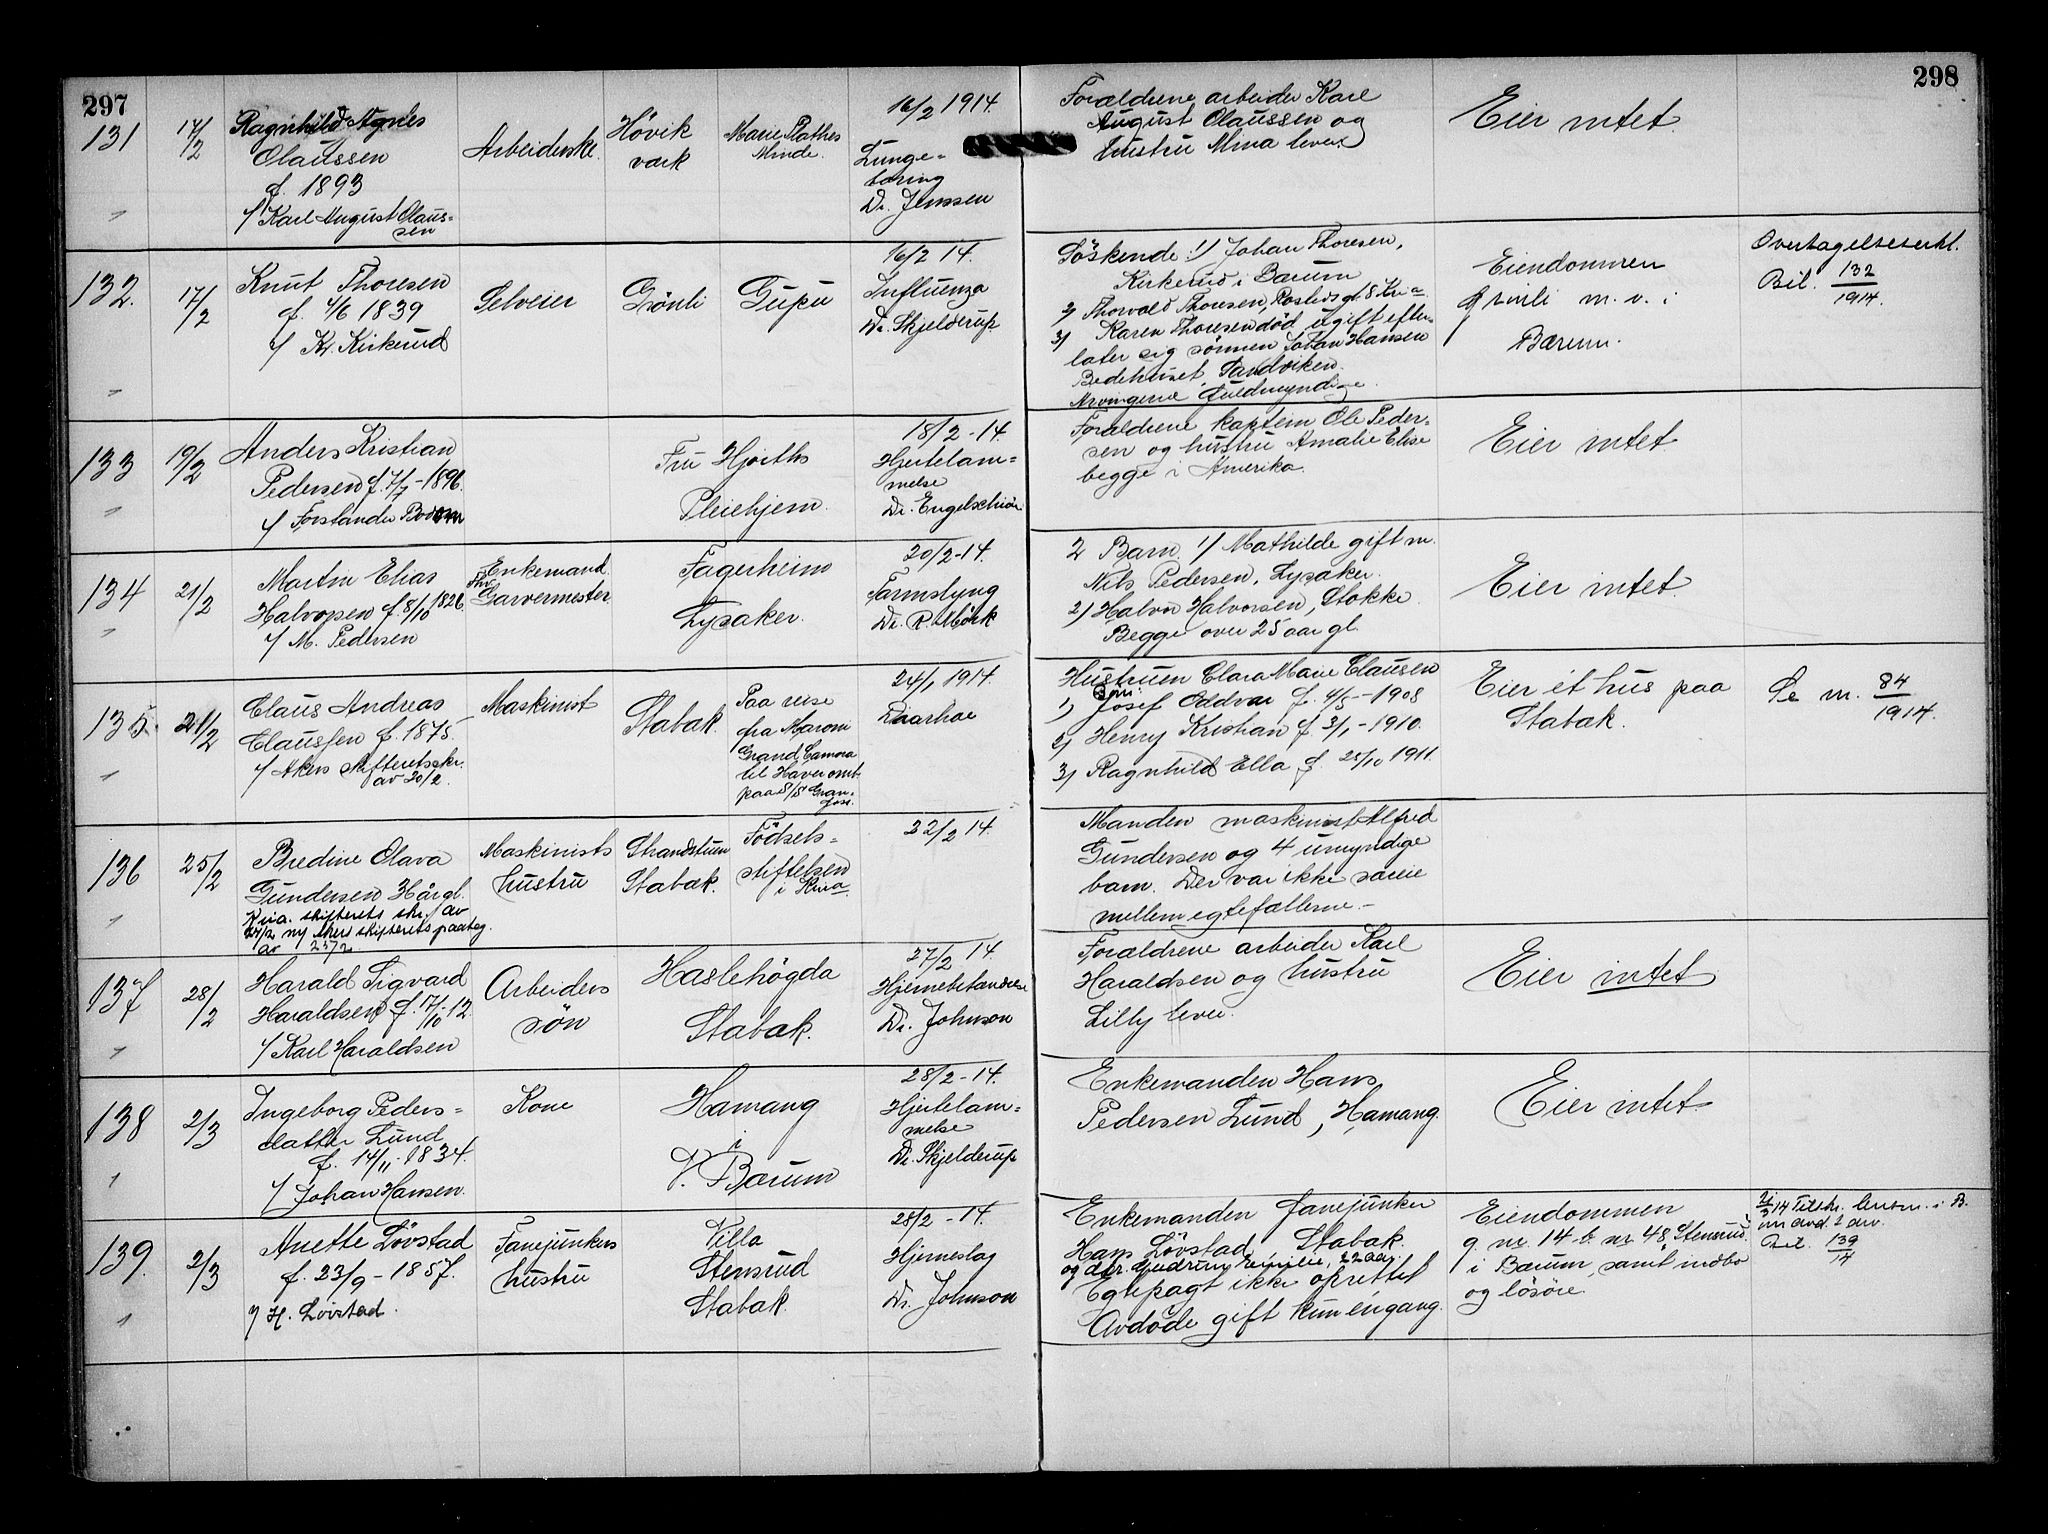 297
298
131
17/2
Ragnhild Agnes
Olaussen
f. 1893
/ Karl August Olaus-
sen
Arbeiderske
Hövik
værk
Marie Plathes
Minde.
16/2 1914.
Lunge-
tæring
Dr. Jenssen
Forældrene arbeider Karl
August Olaussen og
hustru Mina lever
Eier intet.
132.
17/2
Knut Thoresen
f. 4/6 1839
/ Kr. Kirkerud
Selveier
Grönli
Gupu
16/2 14.
Influenza
Dr. Skjelderup
Söskende: 1) Johan Thoresen,
Kirkerud i Bærum
2) Thorvald Thoresen, gt. 8 Kr.a
3) Karen Thoresen död ugift efter-
later sig sönnen Johan Hansen
Bedehuset, Sandviken.
Arvingerne fuldmyndige.
Eiendommen
Grinli m. v. i
Bærum.
Overtagelseserkl.
Bil. 132/1914.
133
19/2
Anders Kristian
Pedersen f. 7/7-1896.
/ Forstander Bodom
Fru Hjorths
Pleiehjem.
18/2-14.
Hjertelam-
melse
Dr. Engelschiön
Forældrene kaptein Ole Peder-
sen og hustru Amalie Elise
begge i Amerika.
Eier intet
134
21/2
Martin Elias
Halvorsen f. 8/10 1826.
/ M. Pedersen
Enkemand.
Fhv.
Garvermester
Fagerheim
Lysaker.
20/2-14.
Tarmslyng
Dr. R. Mörk
2 Barn. 1) Mathilde gift m.
Nils Pedersen, Lysaker.
2) Halvor Halvorsen, Stokke
Begge over 25 aar gl.
Eier intet
135.
21/2
Claus Andreas
Claussen f. 1875.
/ Akers skifteretsskr.
av 20/2.
Maskinist
Stabæk.
Paa reise
fra Maroni
Grand Camora
til Havre omb.
paa S/S Gran-
fos.
24/1 1914.
Diarhoe
Hustruen Clara Marie Clausen
Barn:
1) Josef Oddvar f. 4/5-1908
2) Henry Kristian f. 3/1-1910.
3) Ragnhild Ella f. 25/10 1911.
Eier et hus paa
Stabæk.
Se nr. 84/1914.
136
25/2
Bredine Olava
Gundersen 41 år gl.
Kria. skifterets skr. av
24/2 m/ Akers skifterets paateg.
av 25/2
Maskinists
hustru
Strandstuen
Stabæk.
Födsels-
stiftelsen
i Kria
22/2 14.
Manden maskinist Alfred
Gundersen og 4 umyndige
barn. Der var ikke særeie
mellem egtefællerne.-
137
28/2
Harald Sigvard
Haraldsen f. 17/10-12
/ Karl Haraldsen
Arbeiders
sön
Haslehögda
Stabæk.
27/2 14.
Hjernebetændelse
Dr. Johnson
Forældrene arbeider Karl
Haraldsen og hustru
Lilly lever.
Eier intet
138
2/3
Ingeborg Peders-
datter Lund
f. 14/11-1834.
/ Johan Hansen.
Kone
Hamang
i
V. Bærum
28/2-14.
Hjertelam-
melse
Dr. Skjelderup
Enkemanden Hans
Pedersen Lund, Hamang.
Eier intet
139.
2/3
Anette Lövstad
f. 23/9-1857.
/ H. Lövstad.
Fanejunkers
hustru
Villa
Stensrud
Stabæk.
28/2-14.
Hjerneslag
Dr. Johnson
Enkemanden fanejunker
Hans Lövstad, Stabæk.
og dtr. Gudrun Emilie, 22 aar.
Egtepagt ikke oprettet
Avdöde gift kun engang.
Eiendommen
g. nr. 14 b. nr 48, Stensrud
i Bærum, samt indbo
og lösöre
2/3 14 Tilskr. lensm. i B.
Bil. 139/14